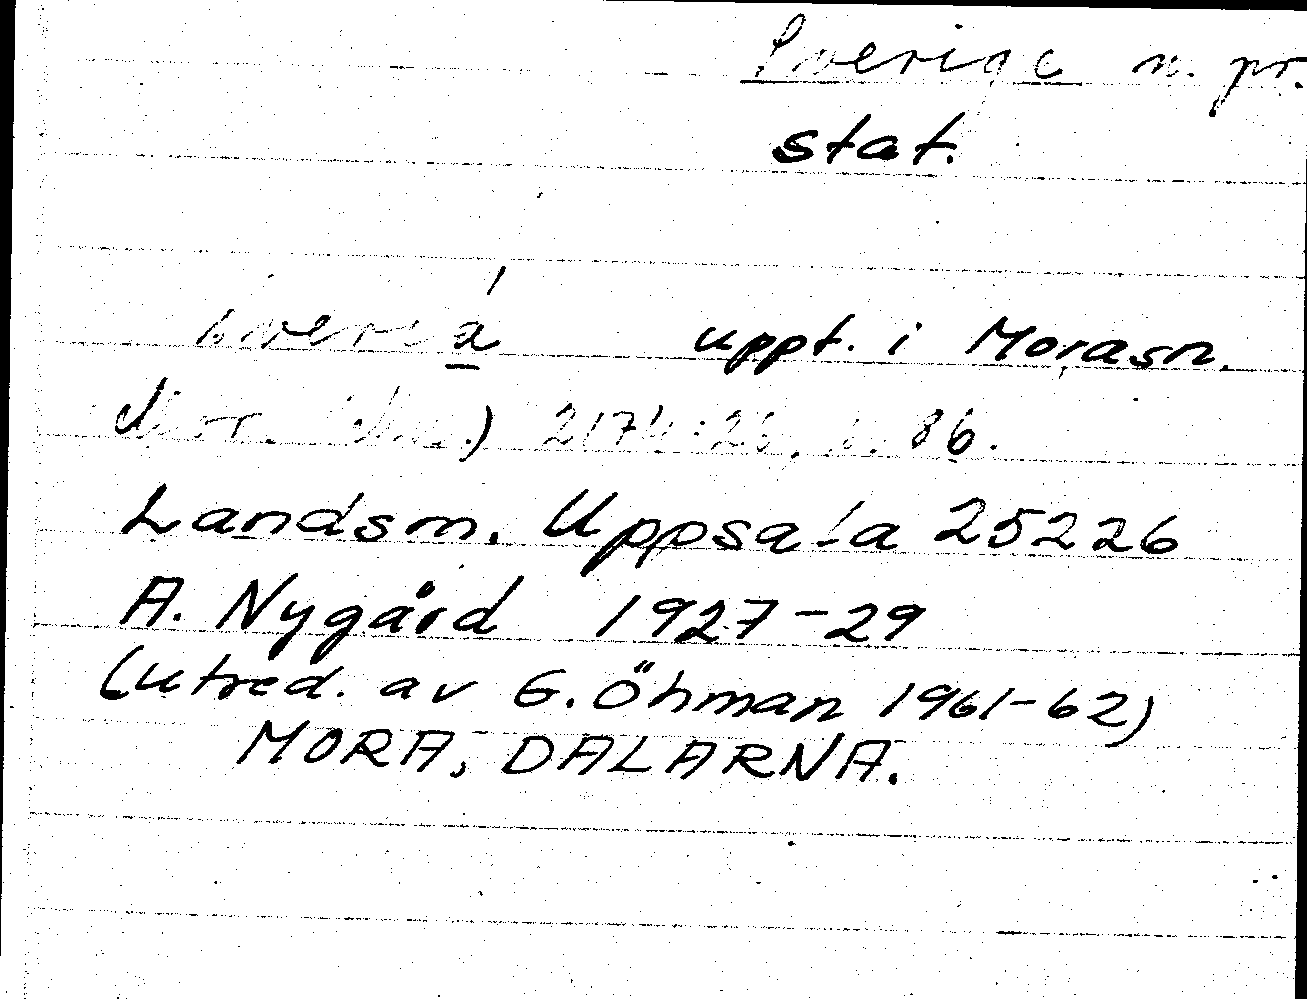 Sverige n. pr.
stat.
uppt. i Morasn.
Mor. 86.
Landsm. Uppsala 25226
A. Nygård 1927-29
(utred. av G. Öhman 1961-62)
MORA, DALARNA.